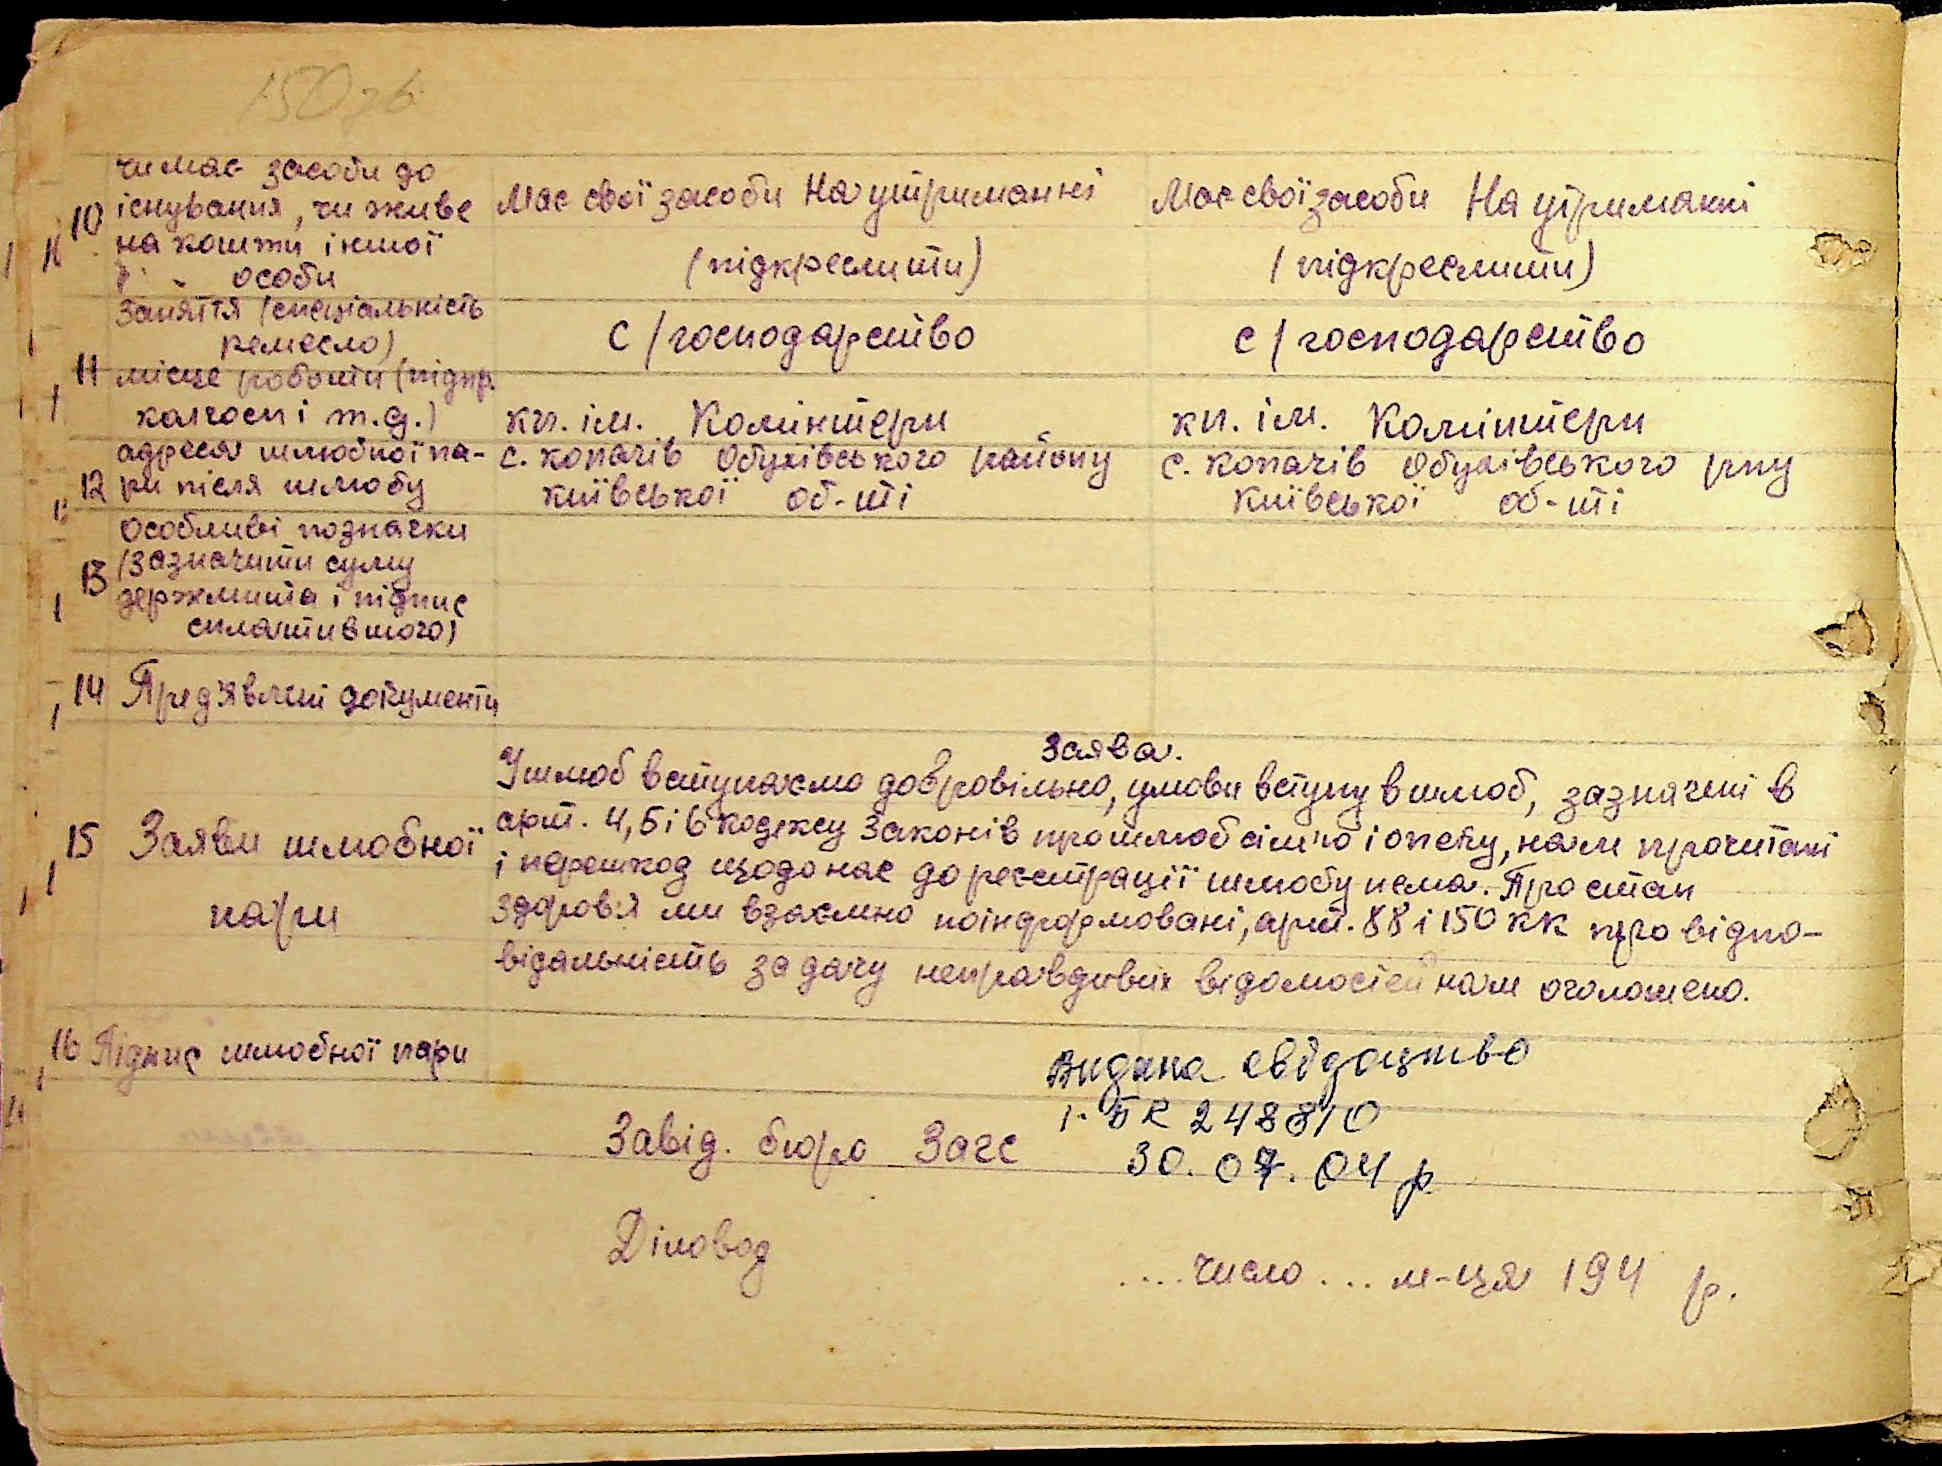 150 зв
10 чи має засоби до
існування, чи живе
на кошти іншої
особи
Має свої засоби На утриманні
(підкреслити)
Має свої засоби На утриманні
(підкреслити)
11 Заняття (спеціальність
ремесло)
с/господарство
с/господарство
місце роботи (підпр.
колгосп і т.д.)
кп. ім. Комінтерн
кп. ім. Комінтерн
12 адреса шлюбної па-
ри після шлюбу
с. копачів Обухівського району
київської об-ті
с. копачів Обухівського рну
київської об-ті
13 Особливі позначки
(зазначити суму
держмита і підпис
сплатившого)
14 Пред'явлені документи
15 Заяви шлюбної
пари
Заява.
У шлюб вступаємо добровільно, умови вступу в шлюб, зазначені в
арт. 4, 5 і 6 кодексу Законів про шлюб сім'ю і опеку, нам прочитані
і перешкод щодо нас до реєстрації шлюбу нема. Про стан
здоров'я ми взаємно поінформовані, арт. 88 і 150 КК про відпо-
відальність за дачу неправдивих відомостей нам оголошено.
16 Підпис шлюбної пари
Видана свідоцтво
І-БК 248810
30.07.04 р
Завід. бюро Загс
Діловод
.... число ... м-ця 194 р.